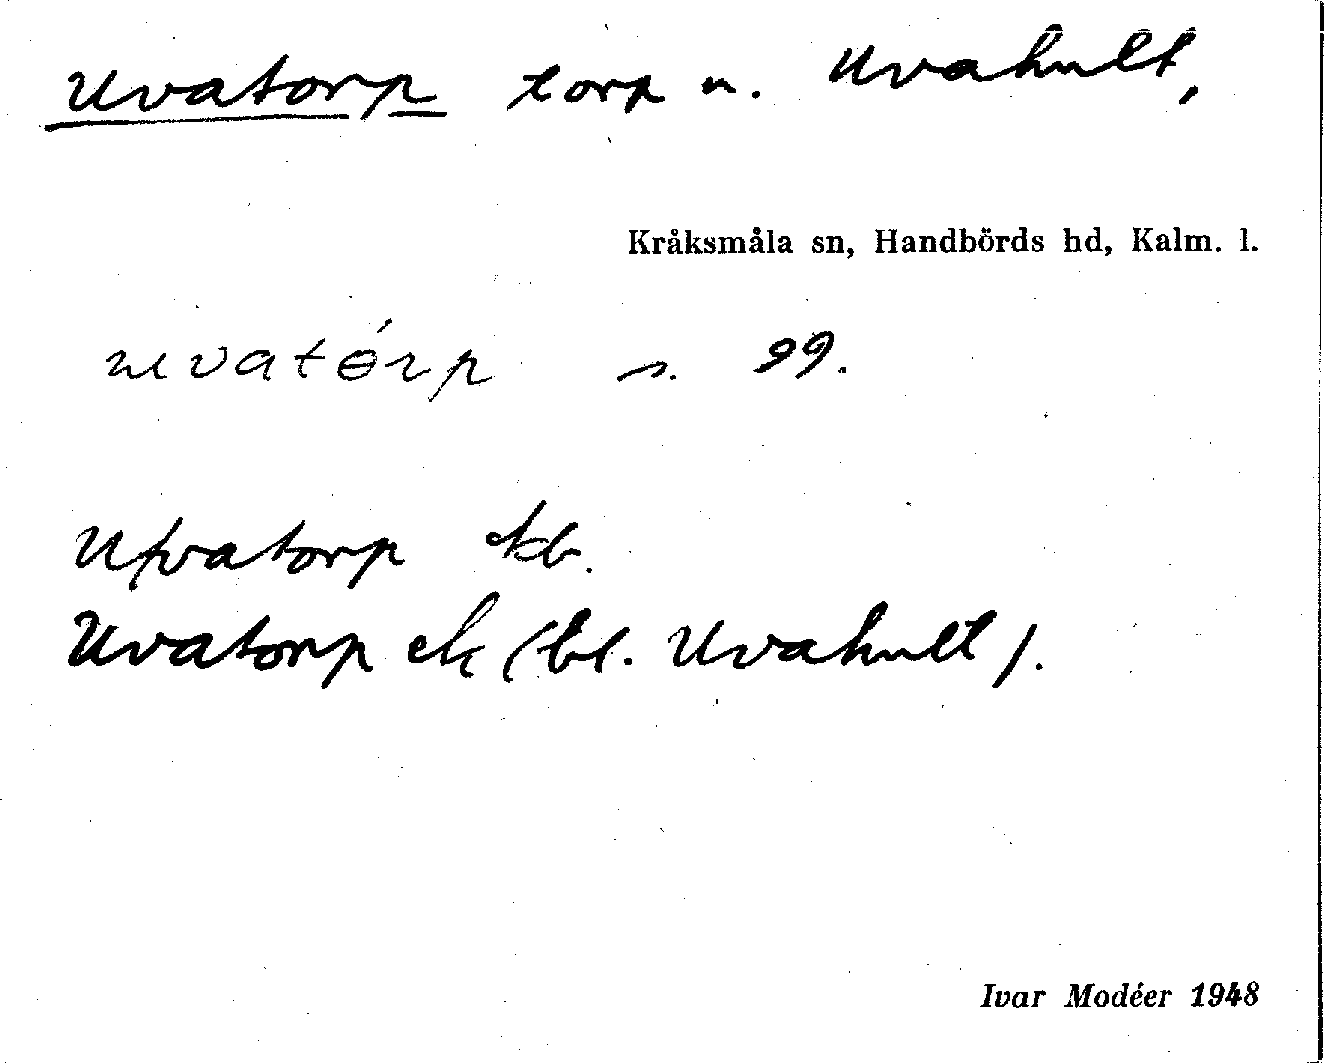 Uvatorp torp u. Uvahult,
Kråksmåla sn, Handbörds hd, Kalm. l.
uvatɵ́rp s. 99.
Ufvatorp ekb.
Uvatorp ek (bl. Uvahult).
Ivar Modéer 1948